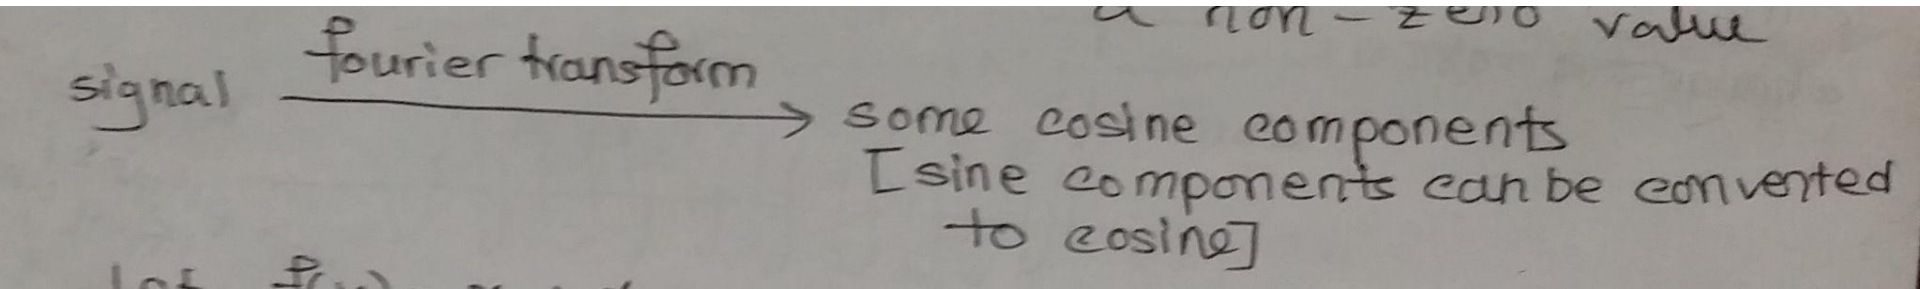 a non-zero value
fourier transform
signal → some cosine components
[sine components can be converted
to cosine]